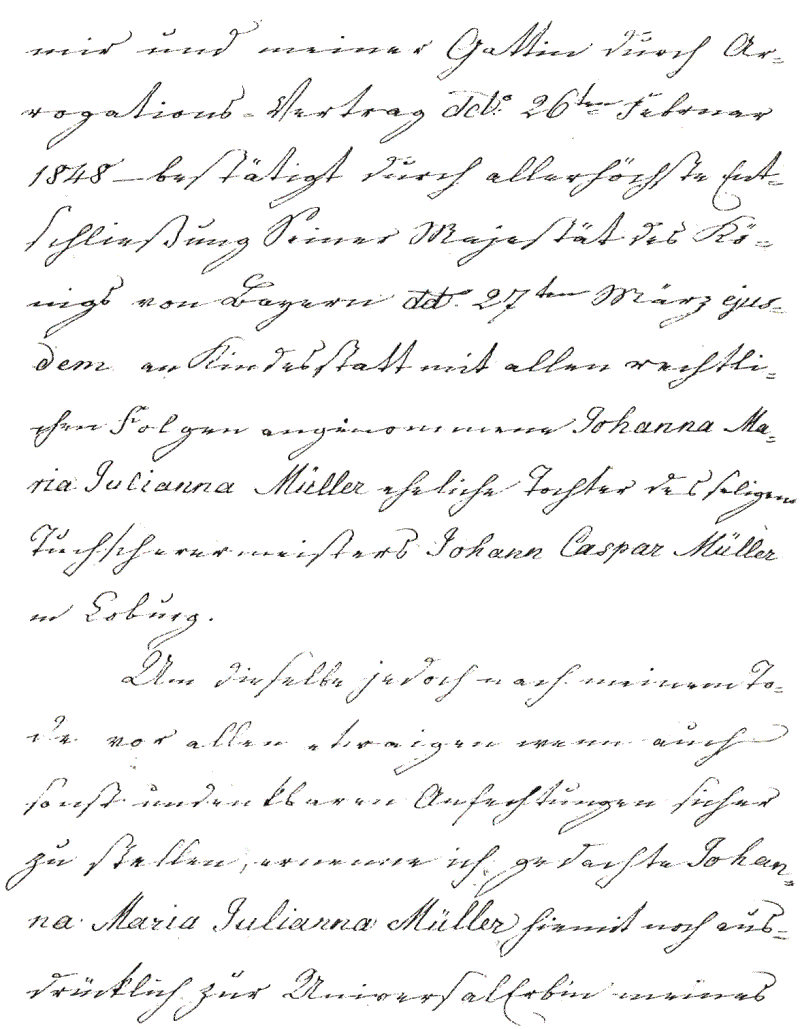 mir und meiner Gattin durch Ar-
rogations-Vertrag dd.º 26ten Februar
1848 – bestätigt durch allerhöchste Ent-
schließung Seiner Majestät des Kö-
nigs von Bayern dd. 27ten März ejus-
dem an Kindesstatt mit allen rechtli-
chen Folgen angenommene Johanna Ma-
ria Julianna Müller eheliche Tochter des seligen
Tuchscherermeisters Johann Caspar Müller
in Coburg.
Um dieselbe jedoch nach meinem To-
de vor allen etwaigen wenn auch
sonst undenkbaren Anfechtungen sicher
zu stellen, ernenne ich gedachte Johan-
na Maria Julianna Müller hiemit noch aus-
drücklich zur UniversalErbin meines